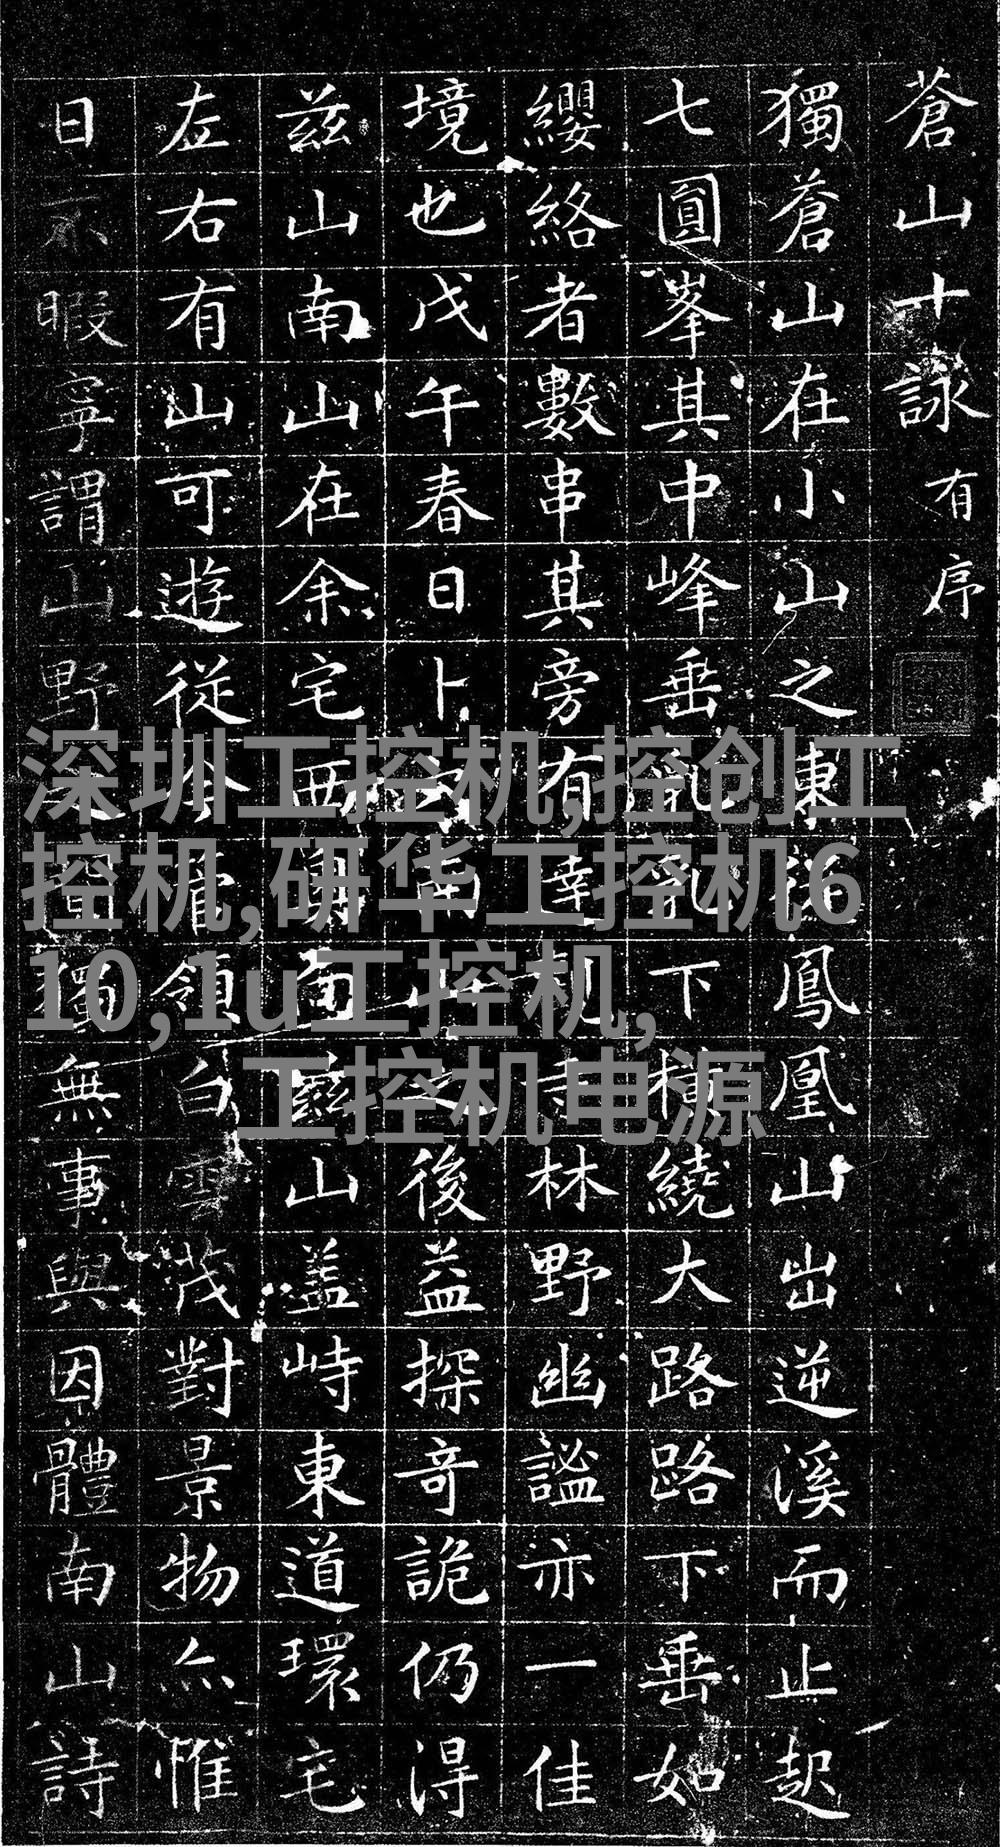 蒼山十詠有序
獨蒼山在小山之東鳳凰山出逆溪而止起
七圓峯其中峰垂乳下積繞大路路下垂如
纓絡者數串其旁有林野幽謐亦一佳
境也戊午春日卜之後益探奇詭仍得
茲山南山在余宅西面茲山蓋峙東道環宅
左右有山可遊從領白雲茂對景物亦惟
日不暇寧謂山野獨無事與因體南山詩
深圳工控机,控创工
控机,研华工控机6
10,1u工控机,
工控机电源